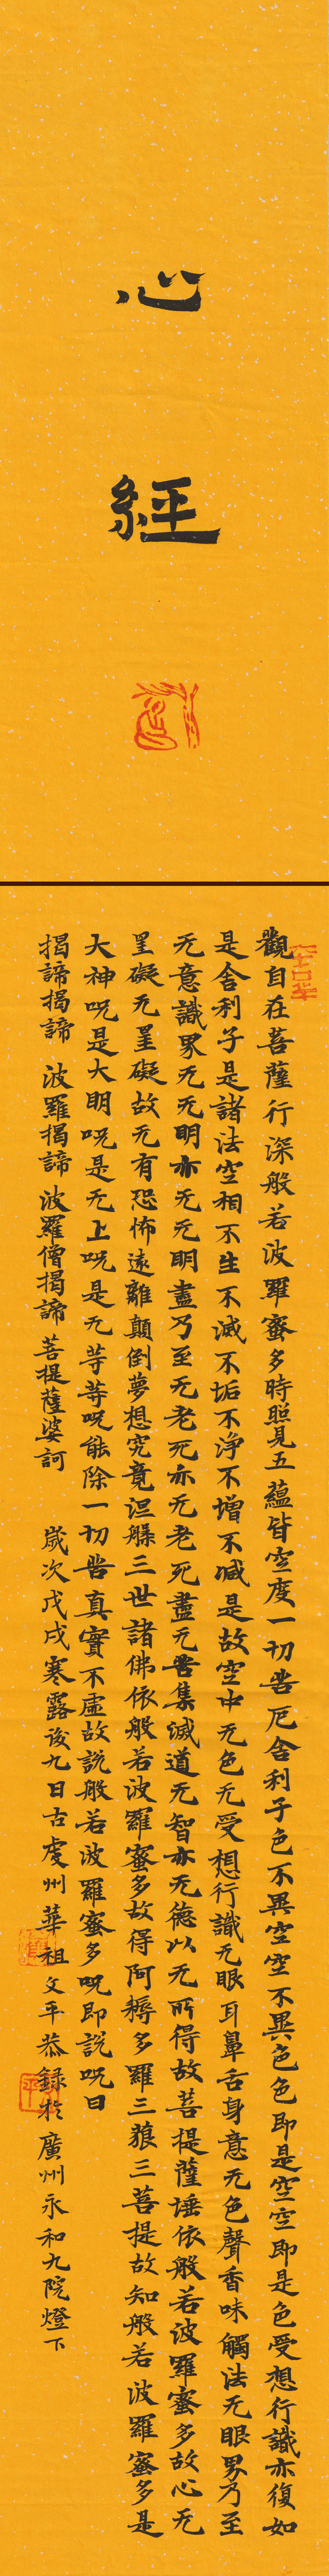 心經
觀自在菩薩行深般若波羅蜜多時照見五蘊皆空度一切苦厄舍利子色不異空空不異色色即是空空即是色受想行識亦復如
是舍利子是諸法空相不生不滅不垢不淨不增不減是故空中无色无受想行識无眼耳鼻舌身意无色聲香味觸法无眼界乃至
无意識界无无明亦无无明盡乃至无老死亦无老死盡无苦集滅道无智亦无德以无所得故菩提薩埵依般若波羅蜜多故心无
罣礙无罣礙故无有恐怖遠離顛倒夢想究竟涅槃三世諸佛依般若波羅蜜多故得阿耨多羅三狼三菩提故知般若波羅蜜多是
大神呪是大明呪是无上呪是无等等呪能除一切苦真實不虛故說般若波羅蜜多呪即說呪曰
揭諦揭諦 波羅揭諦 波羅僧揭諦 菩提薩婆訶 歲次戊戌寒露後九日古虔州華祖文平恭錄於廣州永和九院燈下